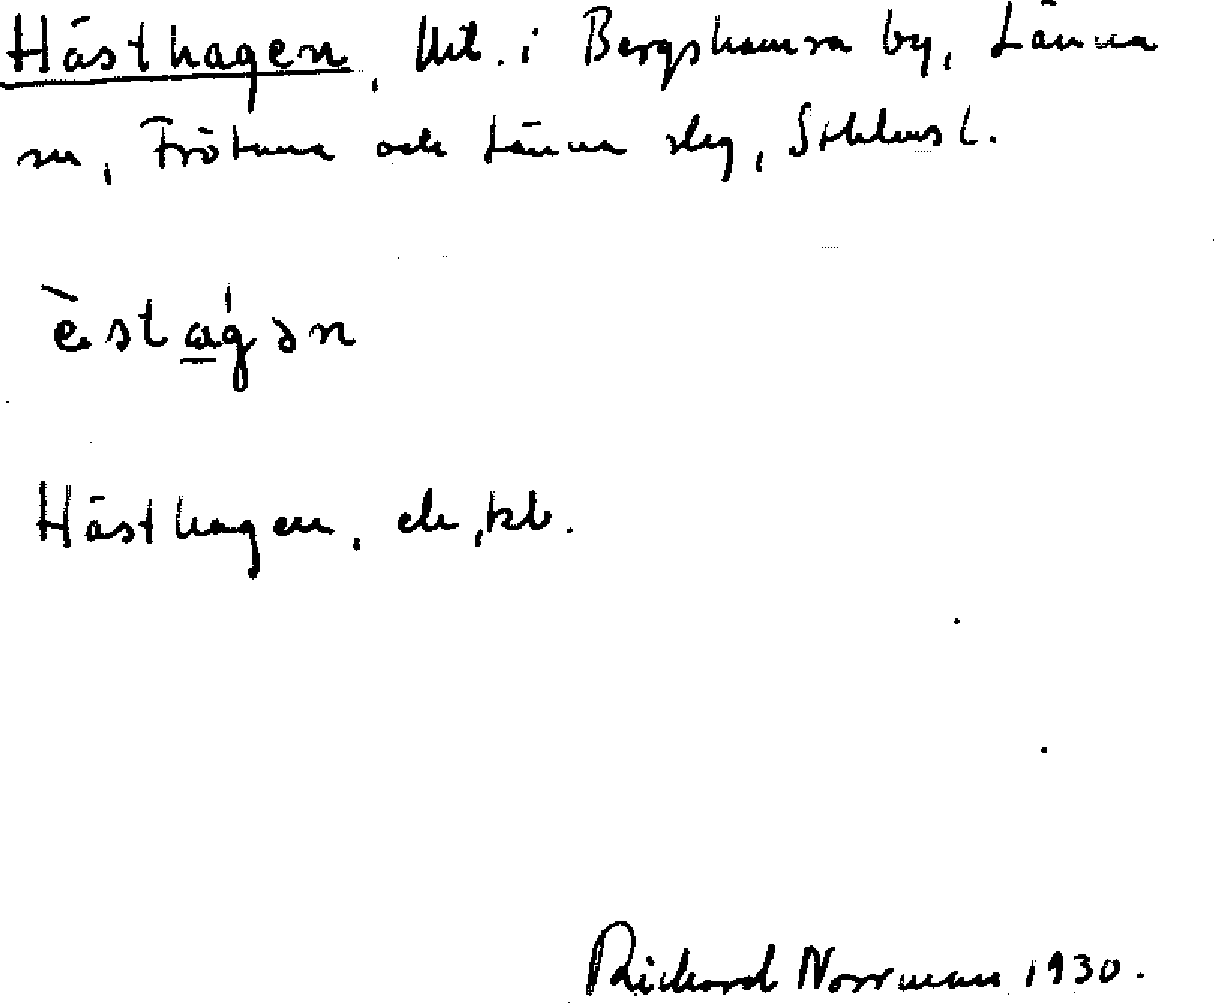 Hästhagen, lht. i Bergshamra by, Länna
sn, Frötuna och Länna skg, Sthlms l.
è.stag̀ən
Hästhagen, ek, kb.
Rickard Norrman 1930.